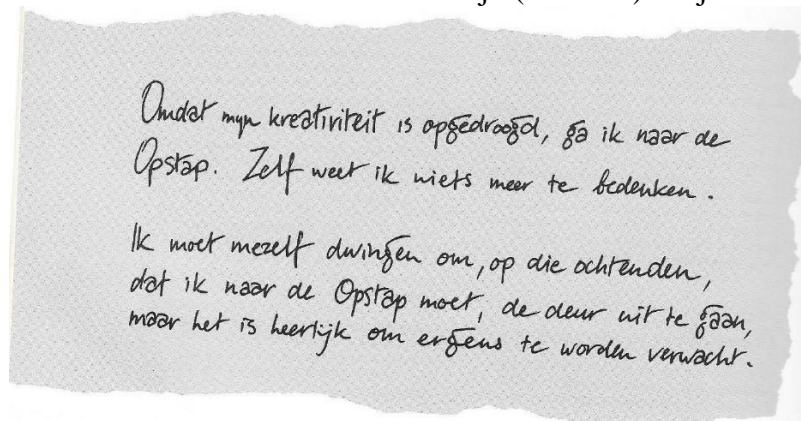 Omdat mijn kreativiteit is opgedroogd, ga ik naar de
Opstap. Zelf weet ik niets meer te bedenken.
Ik moet mezelf dwingen om, op die ochtenden,
dat ik naar de Opstap moet, de deur uit te gaan,
maar het is heerlijk om ergens te worden verwacht.